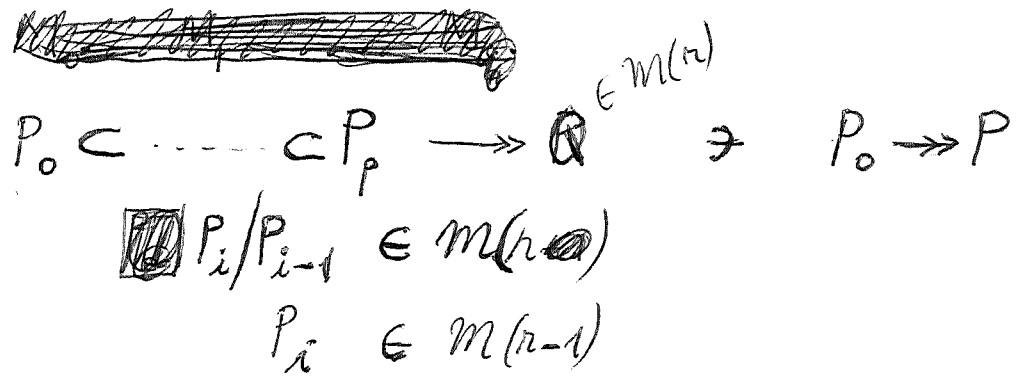 P₀ ⊂ ------ ⊂ Pₚ ↠ Q ∈ m(r) ∋ P₀ ↠ P
Pᵢ/Pᵢ₋₁ ∈ m(r)
Pᵢ ∈ m(r-1)